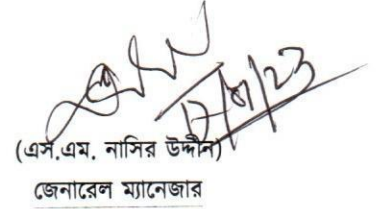 (এস.এম. নাসির উদ্দীন)
জেনারেল ম্যানেজার